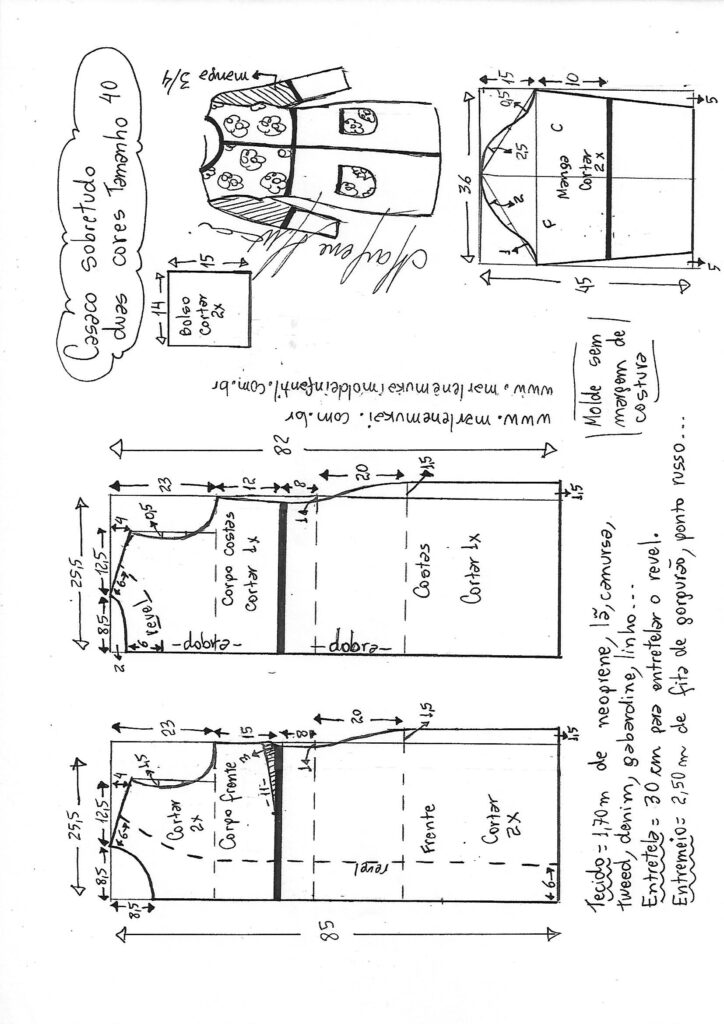 Casaco sobretudo
duas cores Tamanho 40
manga
3/4
Marlene Mukai
15
14
Bolso
Cortar
2x
36
15
10
0,5
2,5
2
1
F
C
Manga
Cortar
2x
45
5
5
www.marlenemukai.com.br
www.marlenemukaimoldeinfantil.com.br
Molde sem
margem de
costura
82
23
12
8
20
25,5
8,5
12,5
4
0,5
6
revel
6
2
Corpo Costas
Cortar 1x
-dobra-
1
1,5
Costas
Cortar 1x
-dobra-
1,5
85
23
15
8
20
25,5
8,5
12,5
4
1,5
6
8,5
Cortar
2x
Corpo frente
3
-11-
1
1,5
revel
Frente
Cortar
2x
6
1,5
Tecido = 1,70m de neoprene, lã, camursa,
tweed, denim, gabardine, linho...
Entretela = 30 cm para entretelar o revel.
Entremeio = 2,50 m de fita de gorgurão, ponto russo...